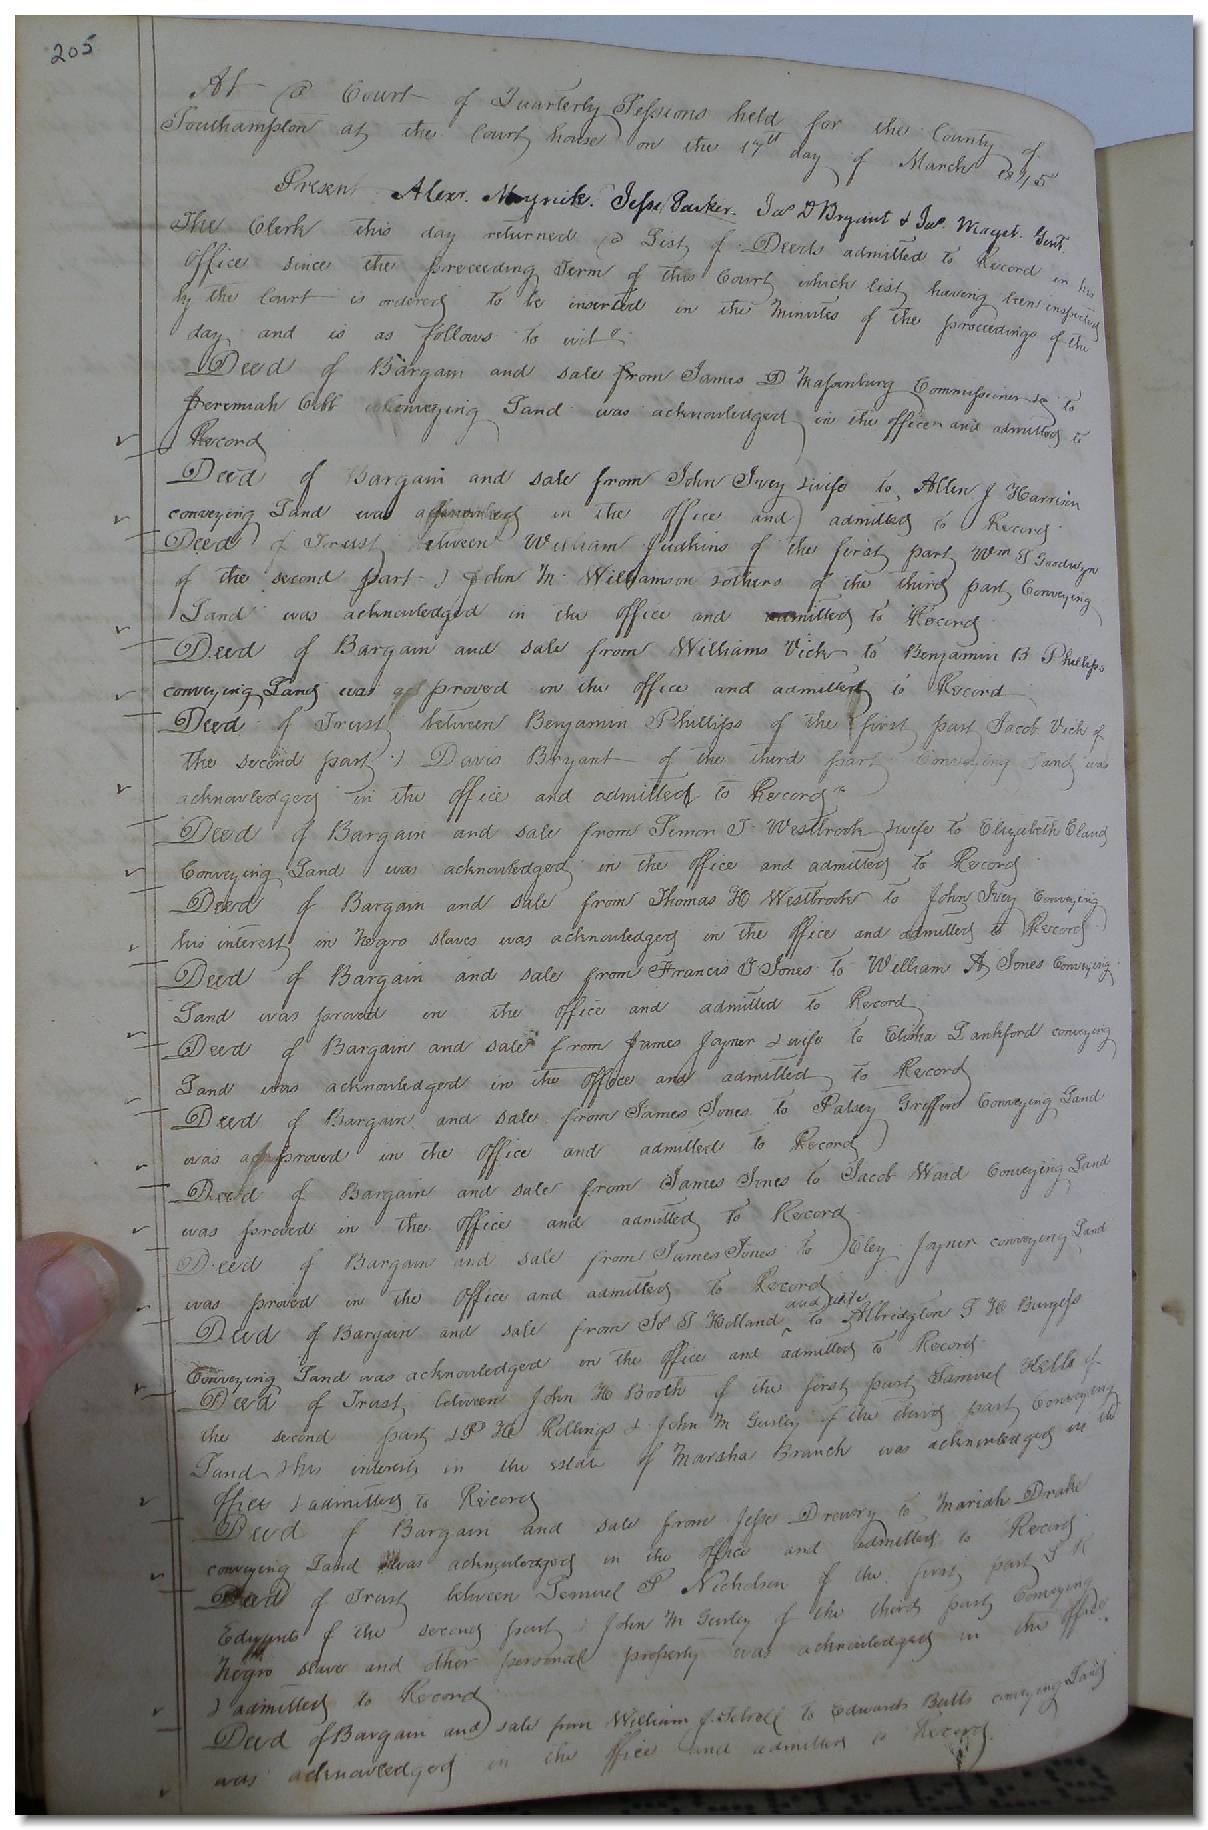 205
At a Court of Quarterly Sessions held for the County of
Southampton at the Court house on the 17th day of March 1845
Present Alexr. Myrick. Jesse Parker. Jas D Bryant & Jas. Maget. Gent.
The Clerk this day returned a List of Deeds admitted to Record in his
office since the preceeding Term of this Court which list having been inspected
by the Court is ordered to be inserted in the Minutes of the proceedings of the
day and is as follows to wit
Deed of Bargain and sale from James D Massenburg Commissioner &c to
Jeremiah Cobb Conveying Land was acknowledged in the office and admitted to
Record
Deed of Bargain and sale from John Ivey & wife to Allen J Harrison
conveying Land was acknowledged in the office and admitted to Record
Deed of Trust between William Judkins of the first part Wm S Goodwyn
of the second part & John M. Williamson & others of the third part Conveying
Land was acknowledged in the office and admitted to Record
Deed of Bargain and sale from Williams Vick to Benjamin B Phillips
conveying Land was proved in the office and admitted to Record
Deed of Trust between Benjamin Phillips of the first part Jacob Vick of
the second part & Davis Bryant of the third part Conveying Land was
acknowledged in the office and admitted to Record
Deed of Bargain and sale from Simon T. Westbrook & wife to Elizabeth Claud
Conveying Land was acknowledged in the office and admitted to Record
Deed of Bargain and sale from Thomas H Westbrook to John Ivey Conveying
his interest in Negro slaves was acknowledged in the office and admitted to Record
Deed of Bargain and sale from Francis T Jones to William A Jones Conveying
Land was proved in the office and admitted to Record
Deed of Bargain and sale from James Joyner & wife to Elisha Lankford conveying
Land was acknowledged in the office and admitted to Record
Deed of Bargain and sale from James Jones to Patsey Griffin Conveying Land
was proved in the office and admitted to Record
Deed of Bargain and sale from James Jones to Jacob Ward Conveying Land
was proved in the office and admitted to Record
Deed of Bargain and sale from James Jones to Eley Joyner conveying Land
was proved in the office and admitted to Record
Deed of Bargain and sale from Js T Holland and wife to Albridgton S H Burgess
Conveying Land was acknowledged in the office and admitted to Record
Deed of Trust between John H Booth of the first part Samuel Kello of
the second part & P H Rollings & John M Gurley of the third part Conveying
Land & his interest in the estate of Marsha Branch was acknowledged in the
office & admitted to Record
Deed of Bargain and sale from Jesse Drewry to Mariah Drake
conveying Land was acknowledged in the office and admitted to Record
Deed of Trust between Lemuel P Nicholson of the first part S K
Edwards of the second part & John M Gurley of the third part Conveying
Negro slave and other personal property was acknowledged in the office
& admitted to Record
Deed of Bargain and sale from William J. Sebrell to Edward Butts conveying Land
was acknowledged in the office and admitted to Record